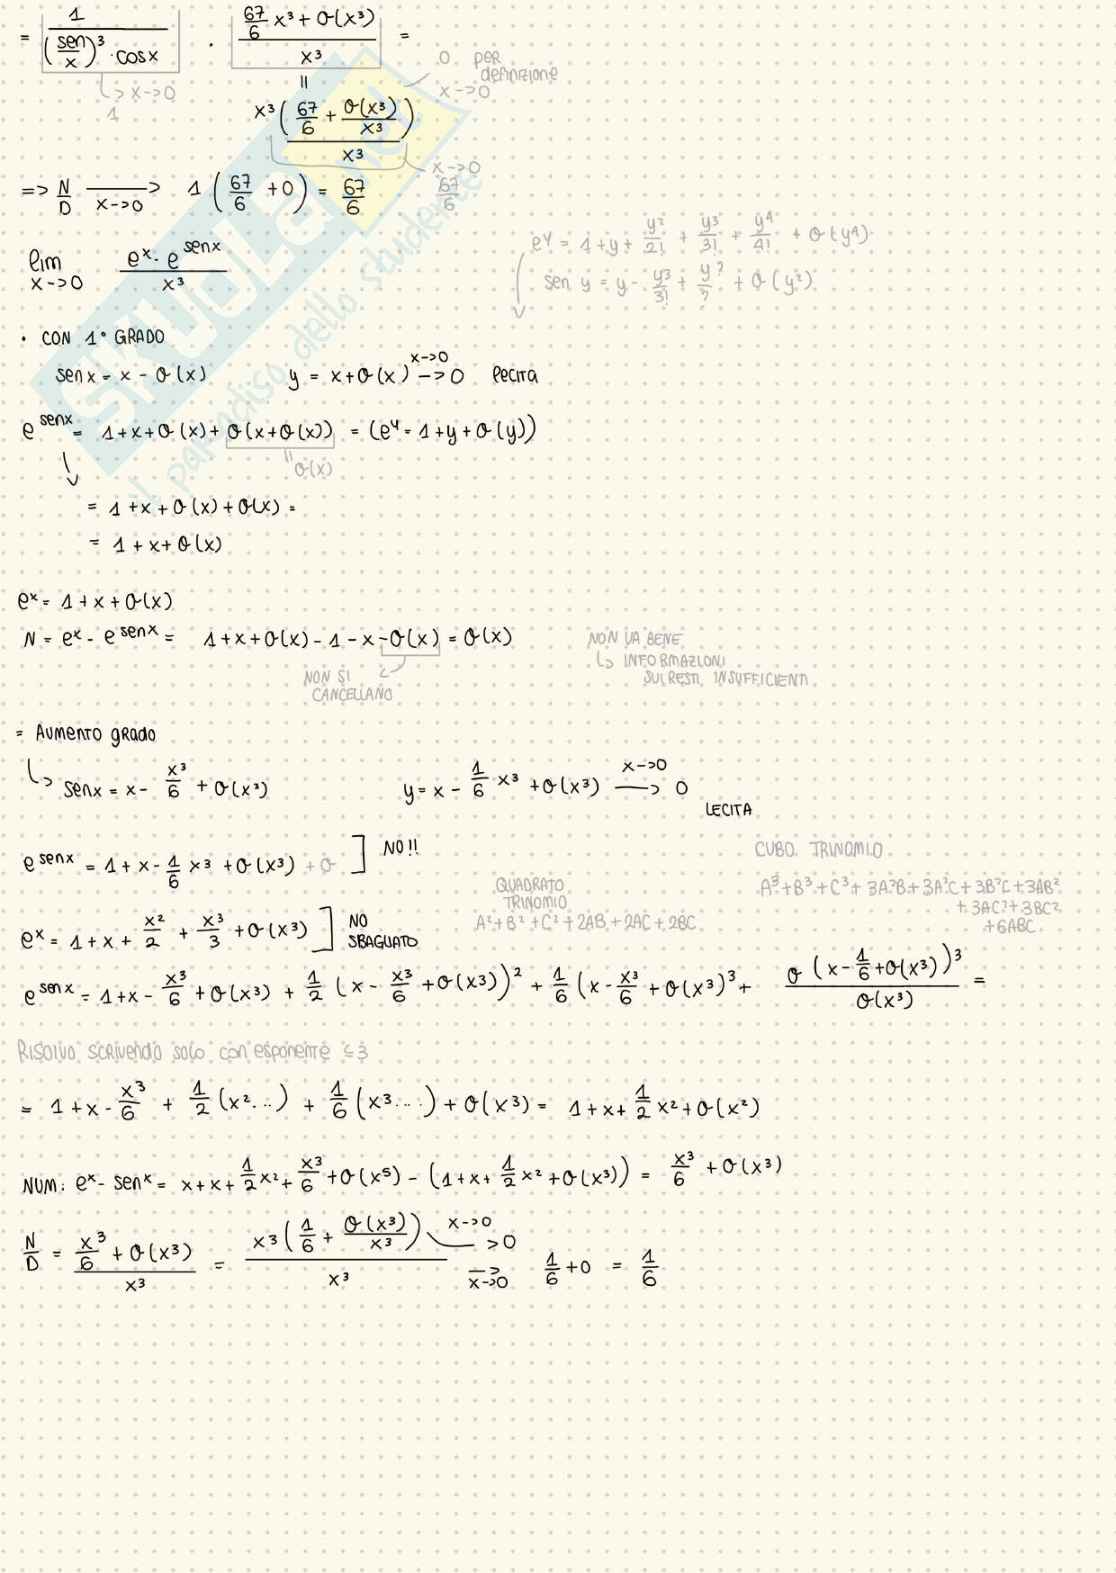 = 1/((sen/x)³ · cosx) · (67/6 x³ + o(x³))/x³ =
↳ x→0
1
0 per definizione
x→0
x³(67/6 + o(x³)/x³)/x³
x→0
67/6
=> N/D → x→0 1 (67/6 + 0) = 67/6
e^y = 1+y+ y²/2! + y³/3! + y⁴/4! + o(y⁴)
lim x→0 (e^x - e^senx)/x³
sen y = y - y³/3! + y^?/? + o(y²)
• CON 1° GRADO
senx = x - o(x) y = x+o(x) x→0 → 0 lecita
e^senx = 1+x+o(x)+o(x+o(x)) = (e^y = 1+y+o(y))
= o(x)
= 1+x+o(x)+o(x) =
= 1+x+o(x)
e^x = 1+x+o(x)
N = e^x - e^senx = 1+x+o(x)-1-x-o(x) = o(x)
NON SI CANCELLANO
NON VA BENE
↳ INFORMAZIONI SUI RESTI INSUFFICIENTI
= Aumento grado
↳ senx = x - x³/6 + o(x³) y = x - 1/6 x³ + o(x³) x→0 → 0
LECITA
e^senx = 1+x-1/6 x³ + o(x³) + o ] NO!!
CUBO TRINOMIO
A³+B³+C³+3A²B+3A²C+3B²C+3AB²
+3AC²+3BC²
+6ABC
QUADRATO TRINOMIO
A²+B²+C²+2AB+2AC+2BC
e^x = 1+x+ x²/2 + x³/3 + o(x³) ] NO SBAGLIATO
e^senx = 1+x- x³/6 + o(x³) + 1/2 (x - x³/6 + o(x³))² + 1/6 (x - x³/6 + o(x³)³ + o (x - 1/6 + o(x³))³/o(x³) =
Risolvo scrivendo solo con esponente ≤3
= 1+x- x³/6 + 1/2 (x²...) + 1/6 (x³....) + o(x³) = 1+x+ 1/2 x² + o(x²)
NUM: e^x - sen^x = x+x+ 1/2 x² + x³/6 + o(x⁵) - (1+x+ 1/2 x² + o(x³)) = x³/6 + o(x³)
N/D = (x³/6 + o(x³))/x³ = x³(1/6 + o(x³)/x³)/x³ x→0 →0 → x→0 1/6 + 0 = 1/6
SKUOLA.net
il paradiso dello studente